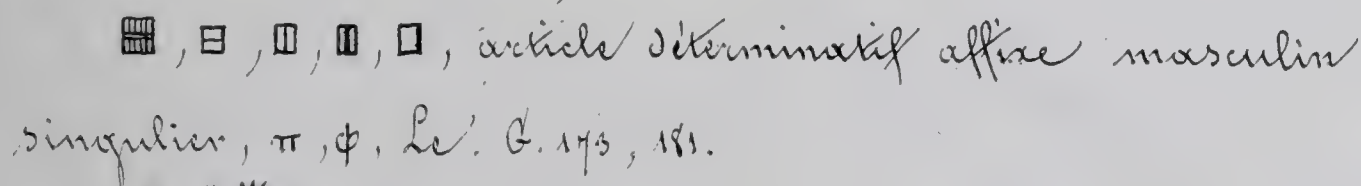 𓊪, 𓊪, 𓊪, 𓊪, 𓊪, article déterminatif affixe masculin
singulier, ⲡ, ⲫ, Le. G. 173, 181.